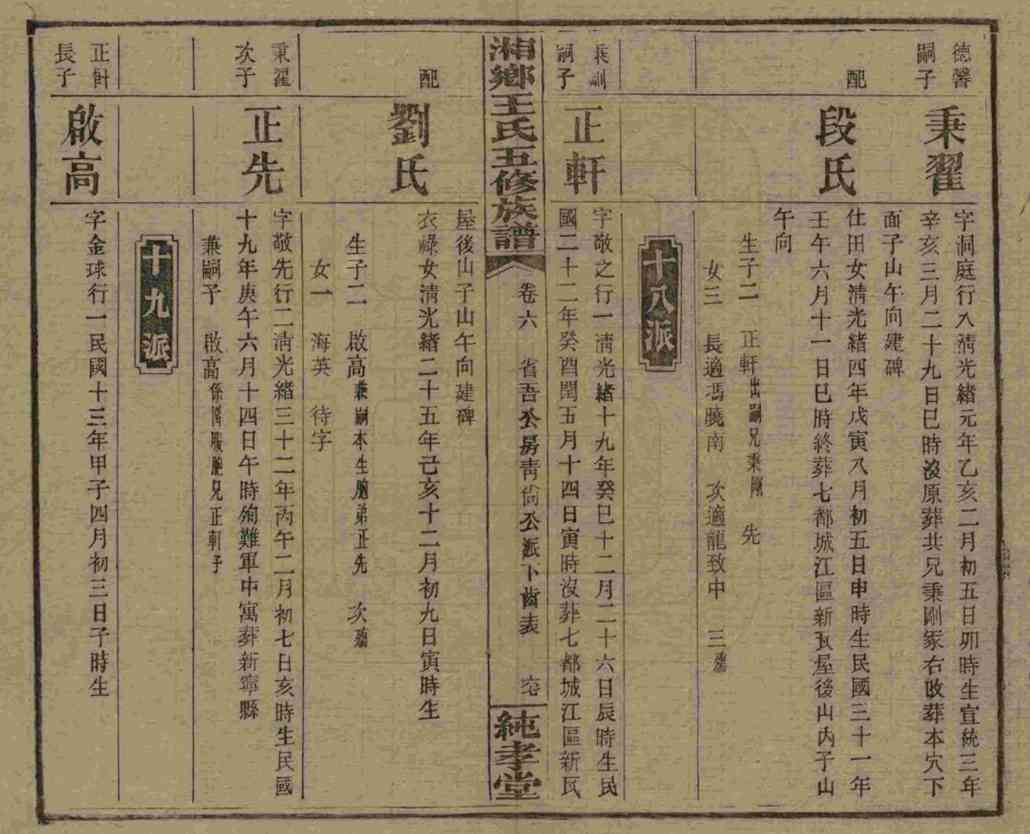 德馨
嗣子
秉翟
字洞庭行八清光緒元年乙亥二月初五日卯時生宣統三年
辛亥三月二十九日巳時沒原葬共兄秉剛冢右改葬本穴下
面子山午向建碑
配
段氏
仕田女清光緒四年戊寅八月初五日申時生民國三十一年
壬午六月十一日巳時終葬七都城江區新瓦屋後山內子山
午向
生子二 正軒出嗣兄秉剛 先
女三 長適馮曉南 次適龍致中 三殤
十八派
秉剛
嗣子
正軒
字敬之行一清光緒十九年癸巳十二月二十六日辰時生民
國二十二年癸酉閏五月十四日寅時沒葬七都城江區新瓦
湘鄉王氏五修族譜
卷六 省吾公房青尙公派下齒表
純孝堂
屋後山子山午向建碑
配
劉氏
衣祿女清光緒二十五年己亥十二月初九日寅時生
生子二 啟高兼嗣本生胞弟正先 次殤
女一 海英 待字
秉翟
次子
正先
字敬先行二清光緒三十二年丙午二月初七日亥時生民國
十九年庚午六月十四日午時殉難軍中寓葬新寧縣
兼嗣子 啟高係胞兄正軒子
十九派
正軒
長子
啟高
字金球行一民國十三年甲子四月初三日子時生